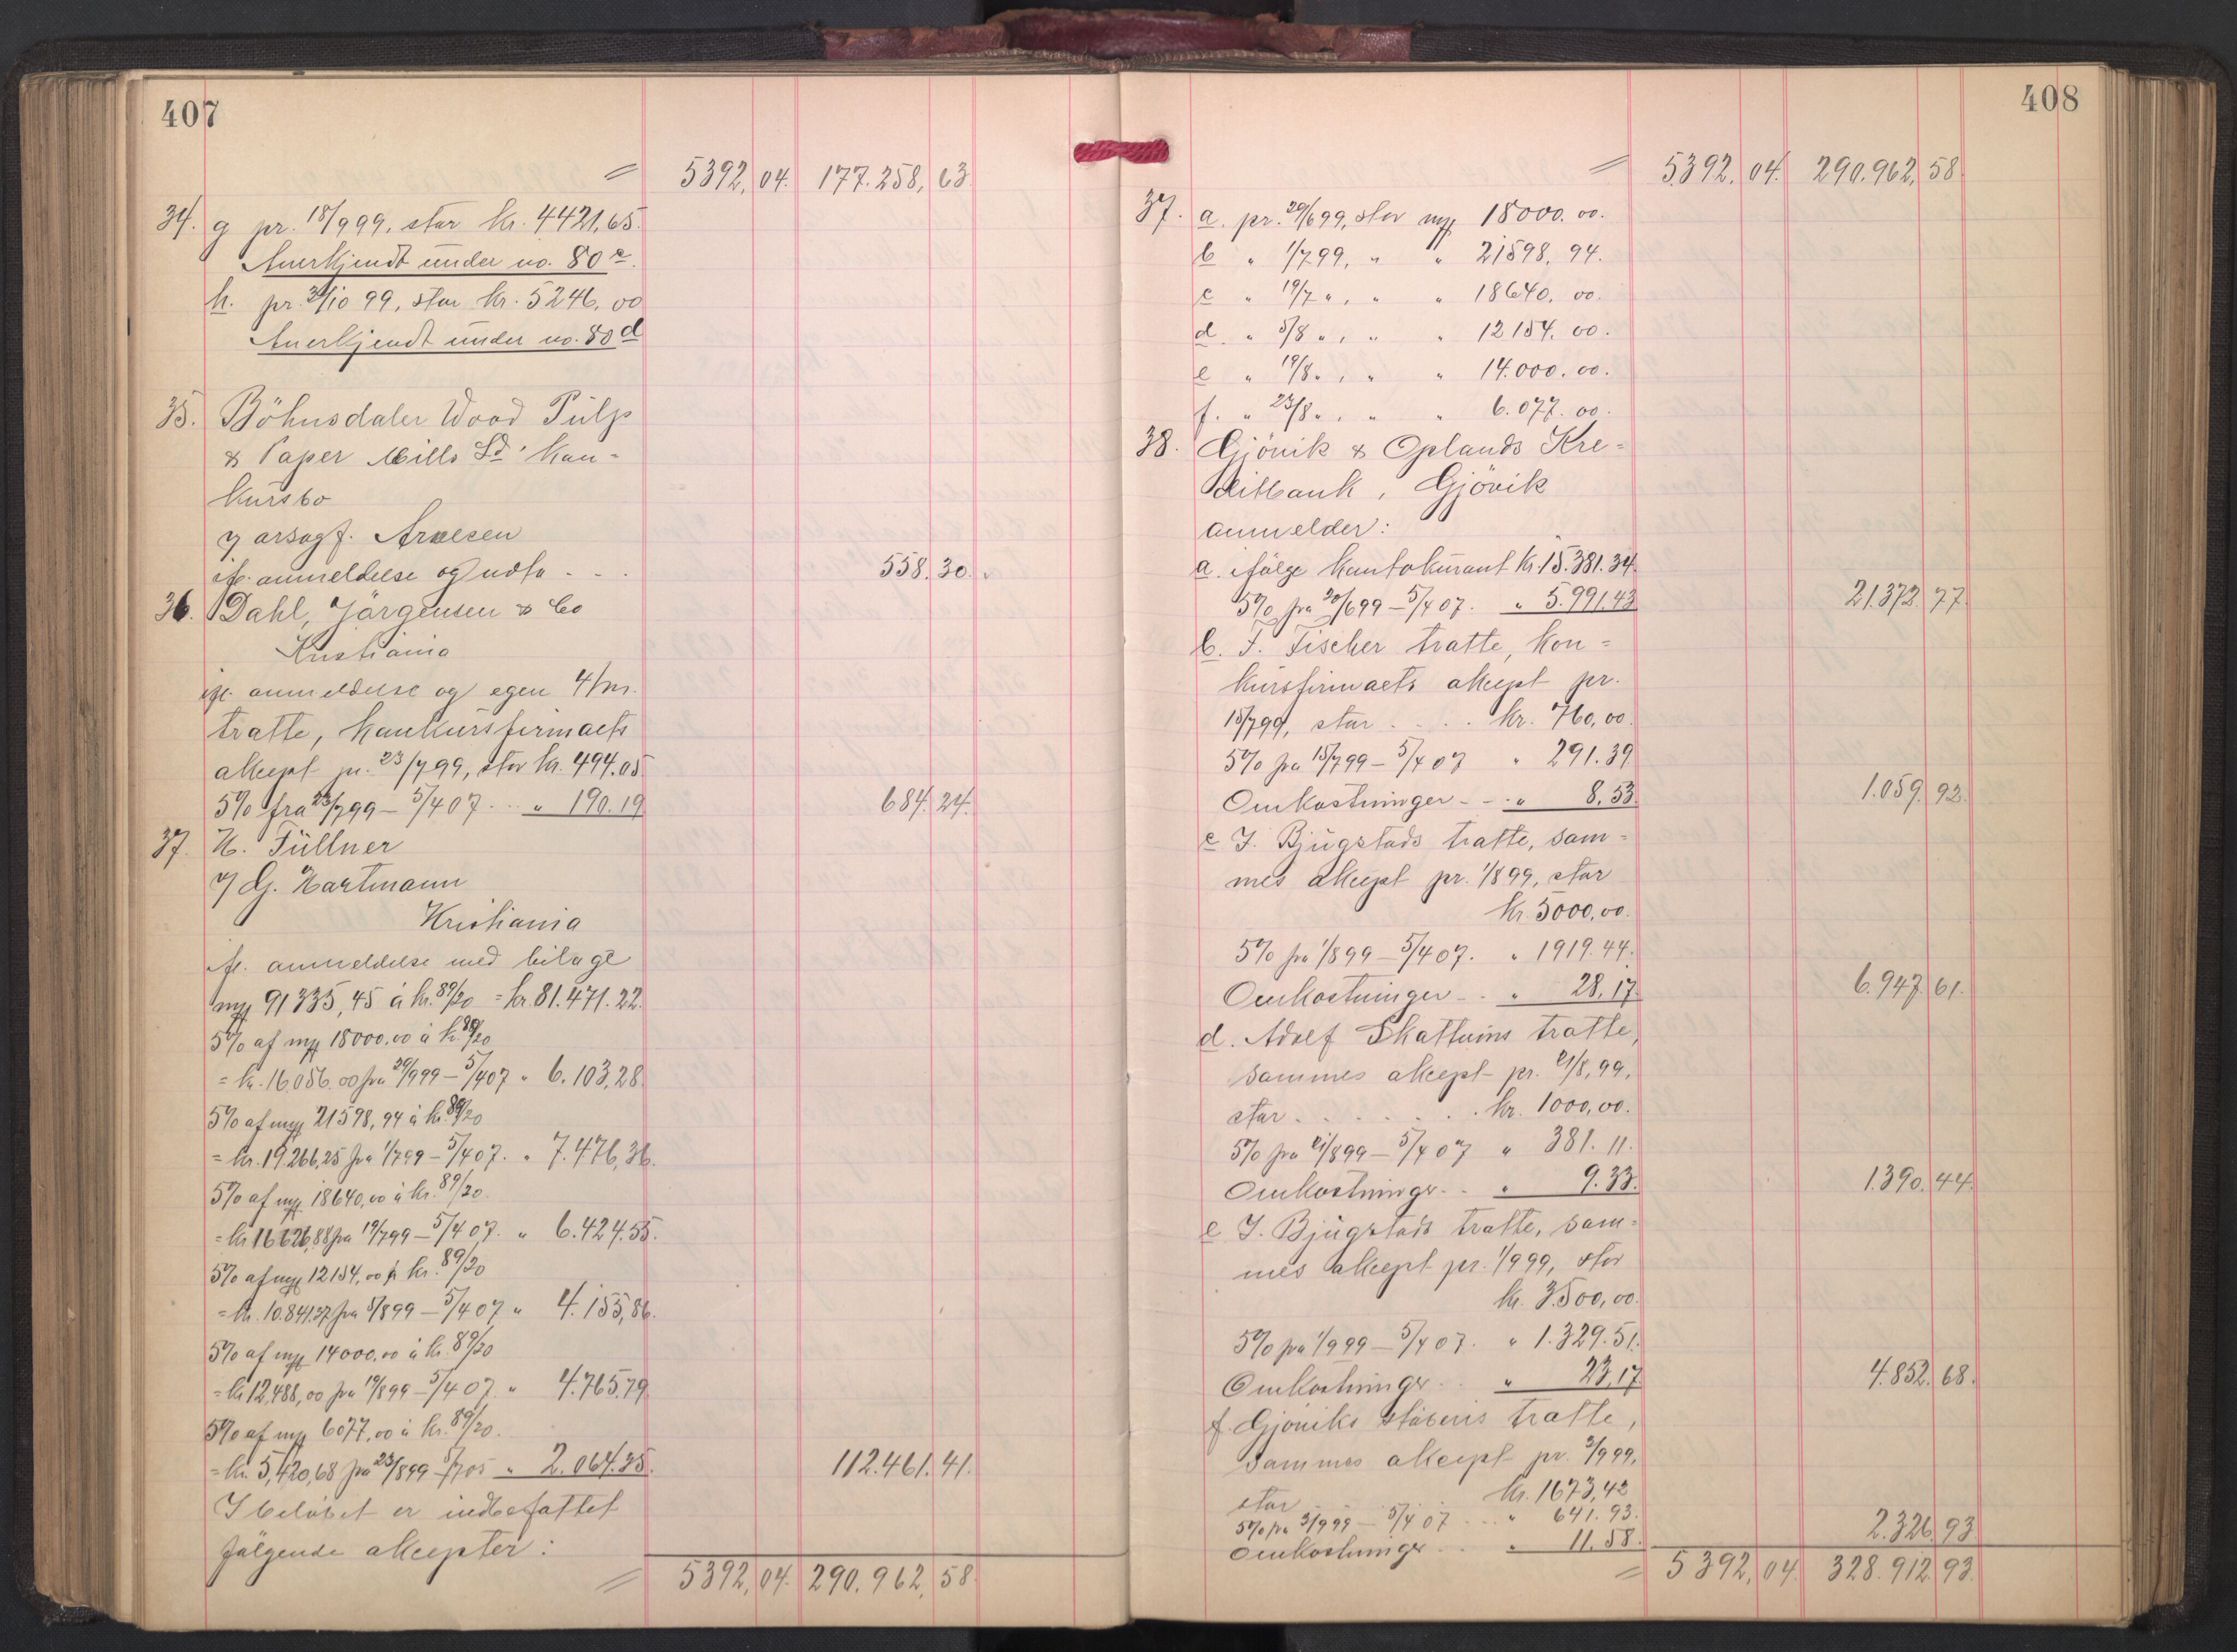 407
= 5392,04. 177.258,63.
34. g pr. 18/9 99, stor kr. 4421,65.
Anerkjendt under no. 80 c.
h. pr. 31/10 99, stor kr. 5246,00
Anerkjendt under no. 80 d
35. Böhnsdalen Wood Pulp
& Paper Mills Ld. kon-
kursbo
v/ orsagf. Arnesen
ifl. anmeldelse og udta - - . 558.30.
36. Dahl, Jörgensen & Co
Kristiania
ifl. anmeldelse og egen 4/m.
tratte, konkursfirmaets
akcept pr. 23/7 99, stor kr. 494.05.
5% fra 23/7 99 - 5/4 07 ... " 190.19 684.24.
37. H. Füllner
v/ G. Hartmann
Kristiania
ifl. anmeldelse med bilage
mk 91335,45 à kr. 89/20 = kr. 81.471.22.
5% af mk 18000.00 à kr. 89/20
= kr. 16.056.00 fra 29/6 99 - 5/4 07 " 6.103,28.
5% af mk 21598,94 à kr. 89/20
= kr. 19.266,25 fra 1/7 99 - 5/4 07. " 7.476,36.
5% af mk 18640,00 à kr. 89/20.
= kr 16626,88 fra 19/7 99 - 5/4 07. " 6.424.55.
5% af mk 12154,00 à kr. 89/20
= kr. 10.841.37 fra 5/8 99 - 5/4 07 " 4.155,86.
5% af mk 14000.00 à kr. 89/20
= kr 12,488,00 fra 19/8 99 - 5/4 07 " 4.765.79
5% af mk 6077,00 à kr. 89/20.
= kr. 5,420,68 fra 23/8 99 - 5/4 05 " 2.064.35. 112.461.41.
I belöbet er indbefattet
fölgende akcepter:
= 5392,04. 290.962,58
408
= 5392,04. 290.962,58.
37. a. pr. 29/6 99, stor mk 18000.00.
b " 1/7 99, " " 21598,94.
c " 19/7 ", " " 18640,00.
d. " 5/8 ", " " 12154.00.
e " 19/8 ", " " 14.000.00.
f. " 23/8 ", " " 6.077.00.
38. Gjövik & Oplands Kre-
ditbank, Gjövik
anmelder:
a. ifölge kontokurant kr. 15.381.34.
5% fra 20/6 99 - 5/4 07. " 5.991.43 21.372.77.
b. F. Fischer tratte, kon-
kursfirmaets akcept pr.
15/7 99, stor . . . . kr. 760,00.
5% fra 15/7 99 - 5/4 07 " 291.39.
Omkostninger - - . " 8,53. 1.059.92.
c J. Bjugstads tratte, sam-
mes akcept pr. 1/8 99, stor
kr. 5000,00.
5% fra 1/8 99 - 5/4 07. " 1919.44.
Omkostninger - . " 28,17. 6.947.61.
d. Adolf Skattums tratte,
sammes akcept pr. 21/8, 99,
stor . . . . . . . kr. 1000,00.
5% fra 21/8 99 - 5/4 07 " 381.11.
Omkostninger. . " 9.33. 1.390.44.
e J. Bjugstads tratte, sam-
mes akcept pr. 1/9 99, stor
kr. 3500,00.
5% fra 1/9 99 - 5/4 07. " 1.329.51.
Omkostninger. . " 23,17 4.852.68.
f. Gjöviks stöberis tratte,
sammes akcept pr. 3/9 99,
stor kr. 1673,42
5% fra 3/9 99 - 5/4 07 ... " 641.93.
Omkostninger . . " 11.58. 2.326.93
= 5392,04. 328.912.93.